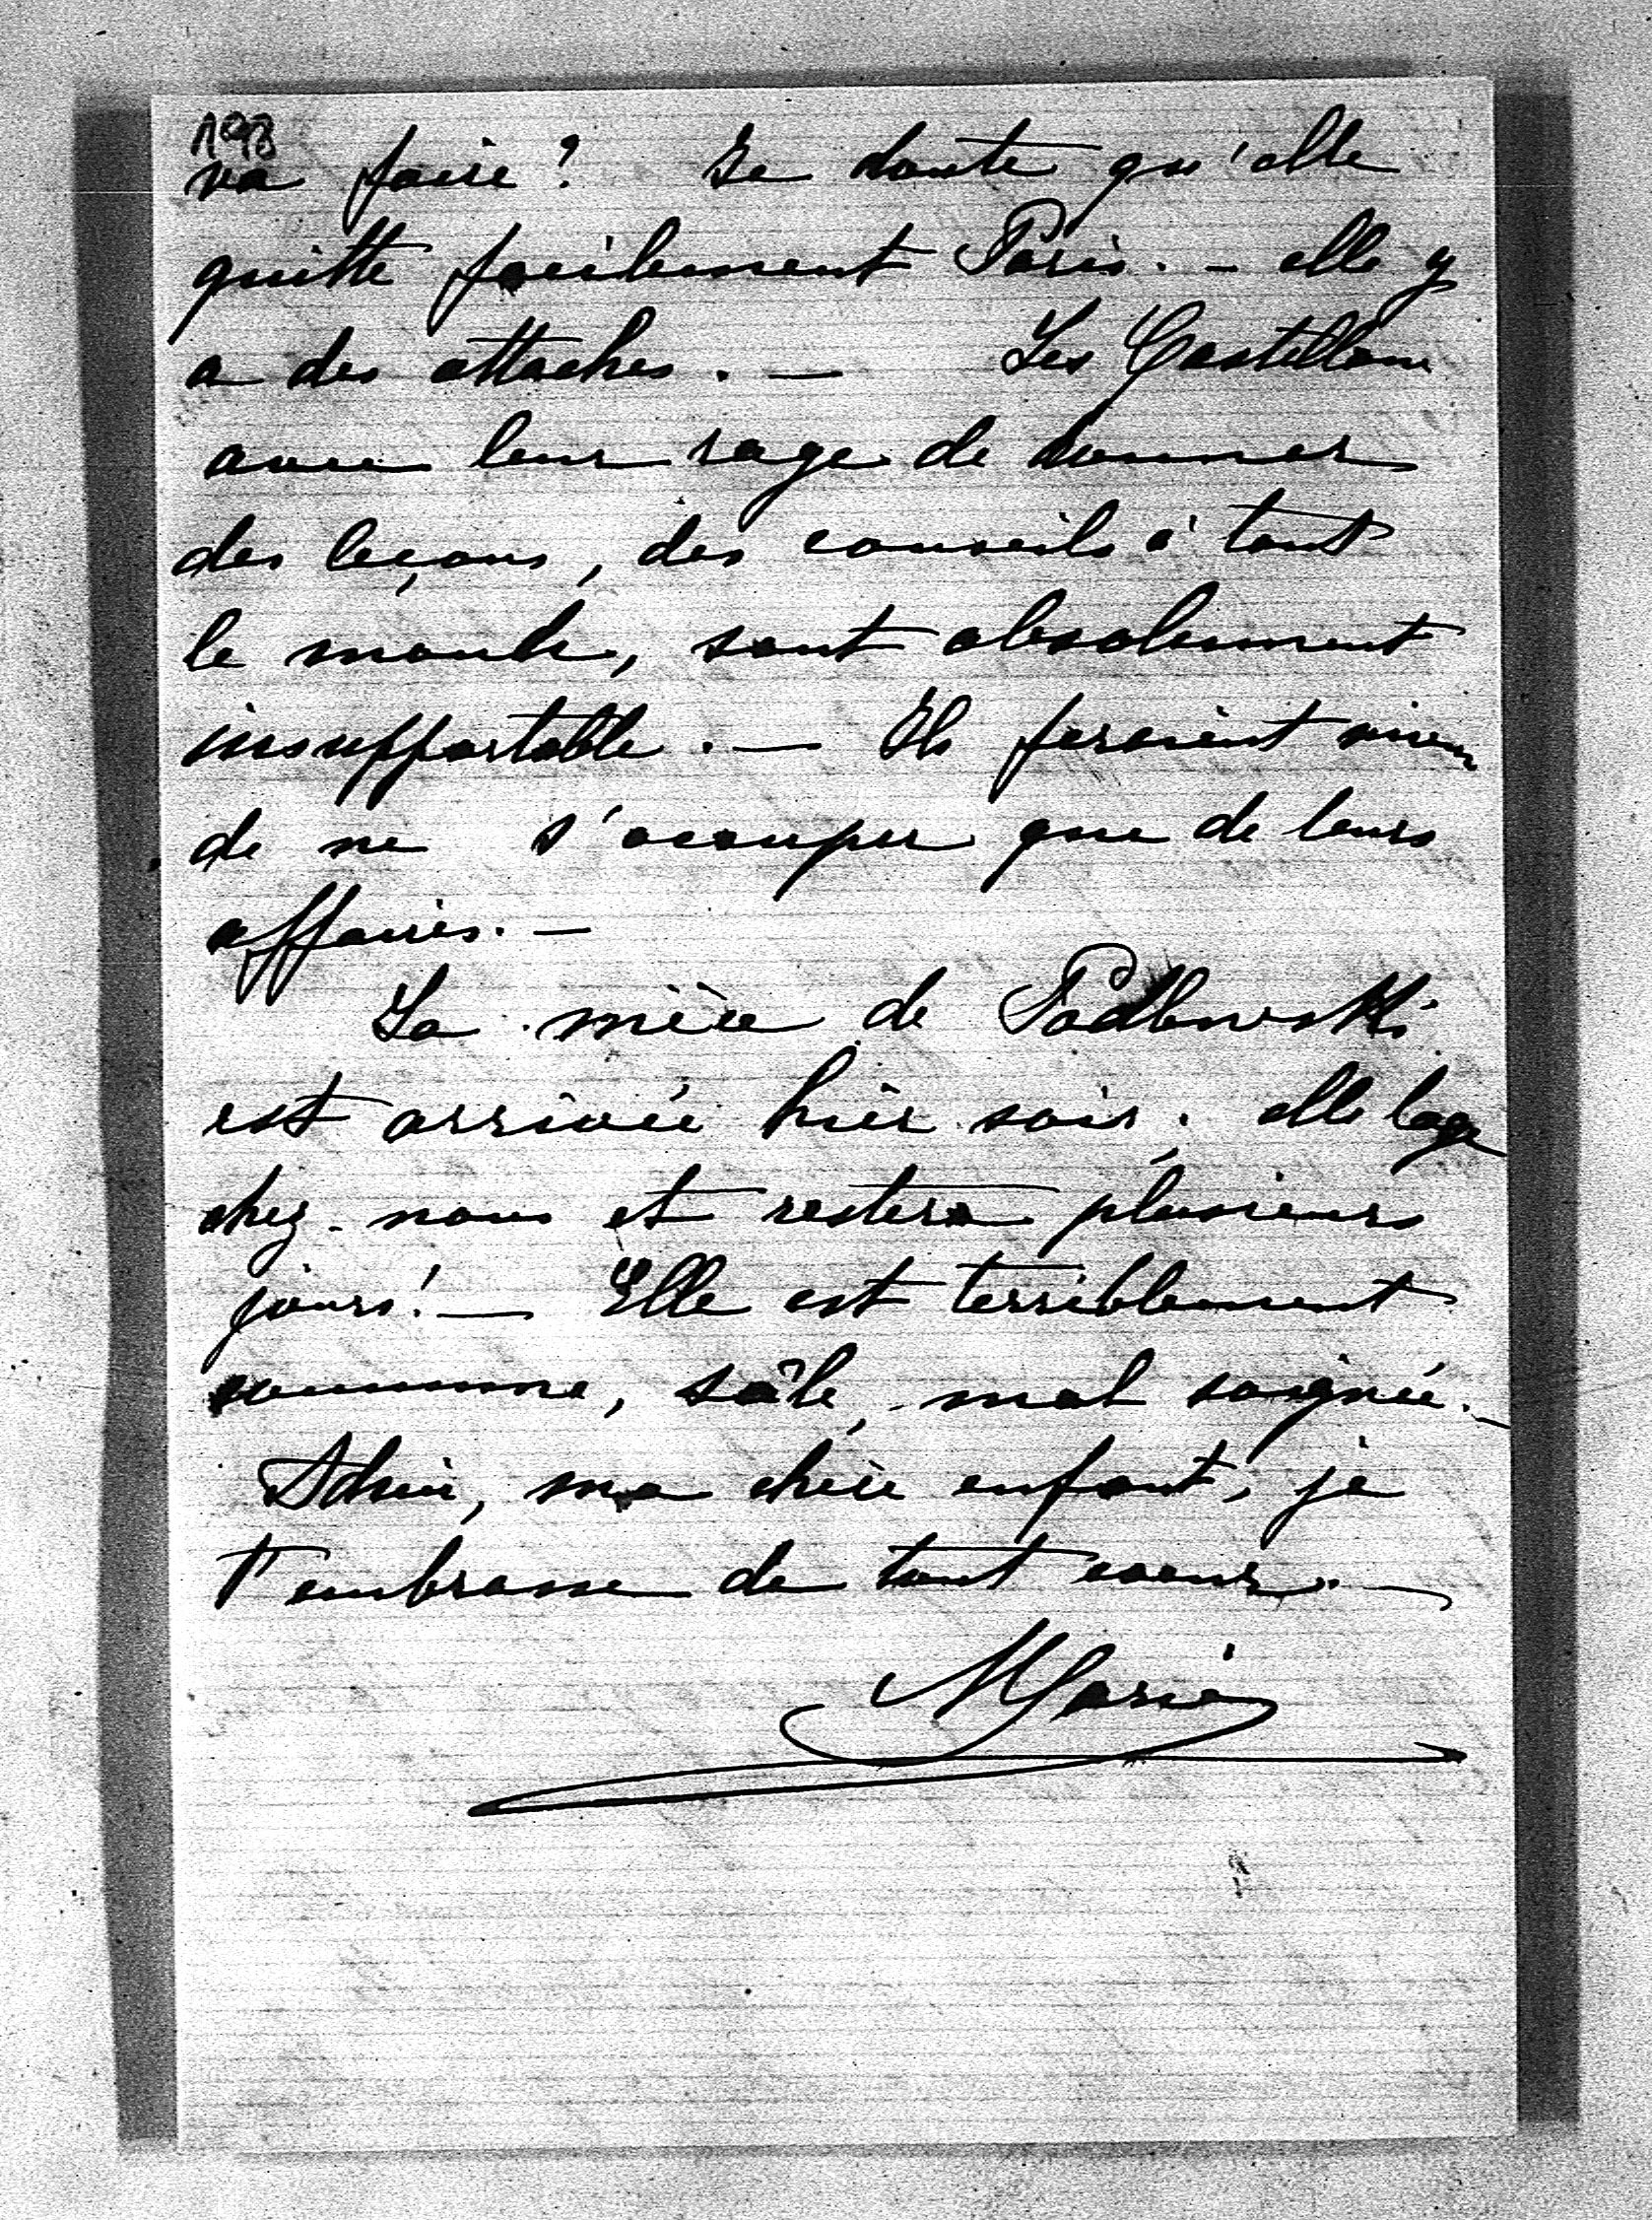 198
va faire? Je doute qu'elle
quitte facilement Paris. - elle y
a des attaches. — Les Castellane
avec leur rage de donner
des leçons, des conseils à tout
le monde, sont absolument
insupportable. — Ils feraient mieux
de ne s'occuper que de leurs
affaires. —
La mère de Podlewski
est arrivée hier soir; elle loge
chez-nous et restera plusieurs
jours! — Elle est terriblement
commune, sâle, mal soignée. —
Adieu, ma chère enfant, je
t'embrasse de tout coeur. —
Marie